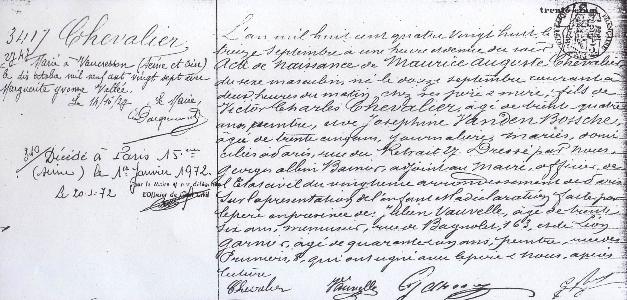 3417 Chevalier
Marié à Vaucresson (Seine et Oise)
le dix octobre mil neuf cent vingt sept avec
Marguerite Yvonne Vallée.
Le 14/10/27 le Maire,
340 Décédé à Paris 15ème
(Seine) le 1er janvier 1972.
Le 20-1-72
L'an mil huit cent quatre vingt huit le
treize septembre à une heure du soir
Acte de naissance de Maurice Auguste Chevalier
du sexe masculin né le douze septembre courant à
deux heures du matin, chez ses père & mère; fils de
Victor Charles Chevalier, âgé de trente quatre
ans, peintre, et de Joséphine Vanden Bossche,
âgée de trente cinq ans, journalière, mariés, domi-
ciliés à Paris, rue du Retrait 27. Dressé par nous
adjoint au Maire, officier de
l'État civil du vingtième arrondissement de Paris
Sur la présentation de l'enfant & déclaration faite par
le père en présence de: Vauvelle, âgé de trente
six ans, menuisier, rue de Bagnolet, 163, et de Léon
Garnier, âgé de quarante ans, peintre, rue des
Pruniers, qui ont signé avec le père & nous, après
lecture.
Chevalier Vauvelle Garnier